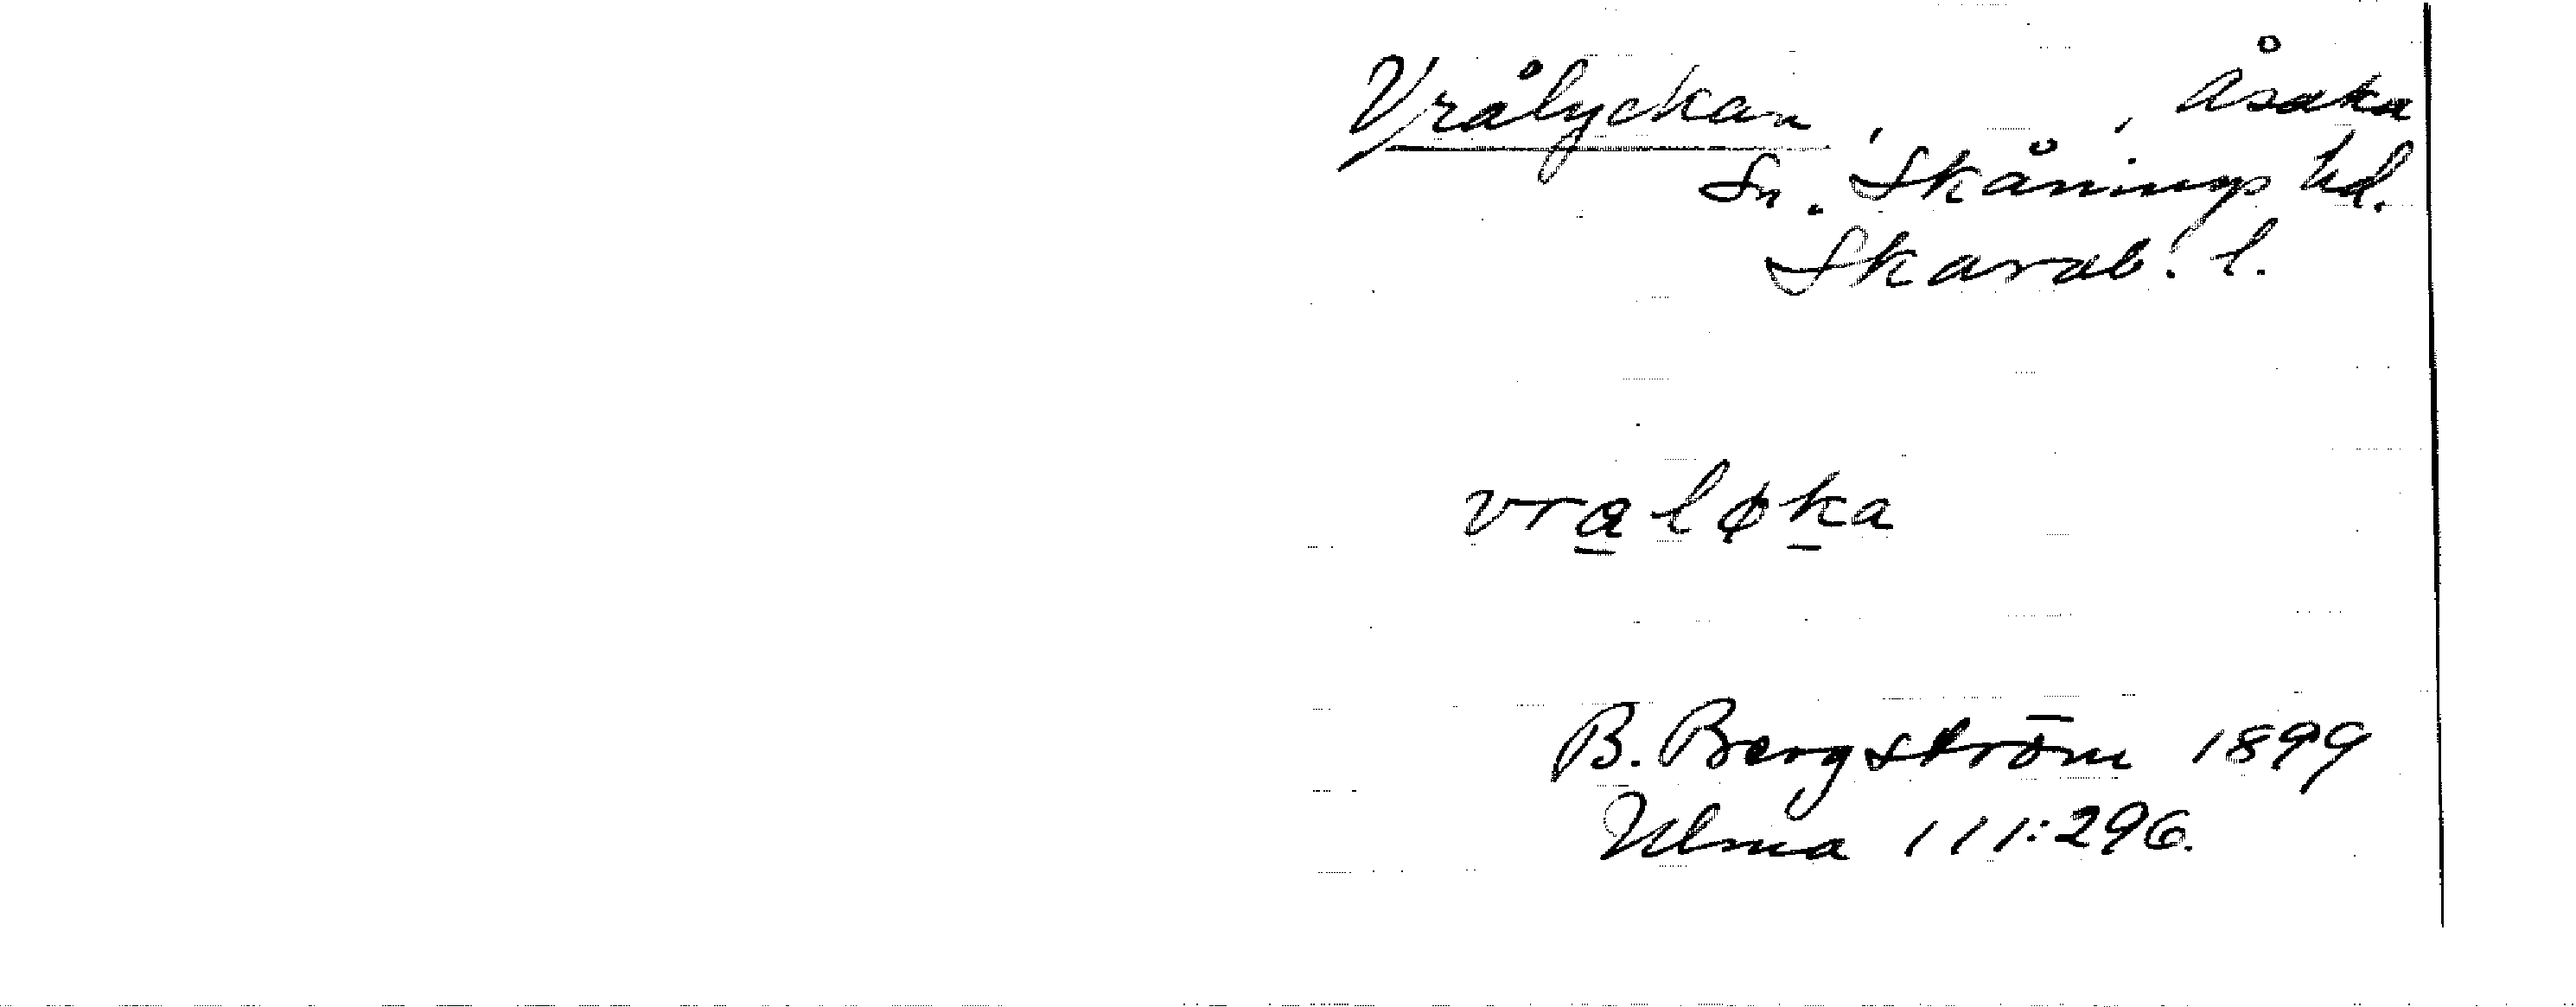 Vrålyckan, , Åsaka
Sn. Skånings hd.
Skarab. l.
vraløka
B. Bergström 1899
Ulma 111:296.